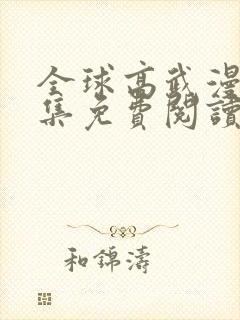 全球高武漫
集免費閱讀
和錦濤